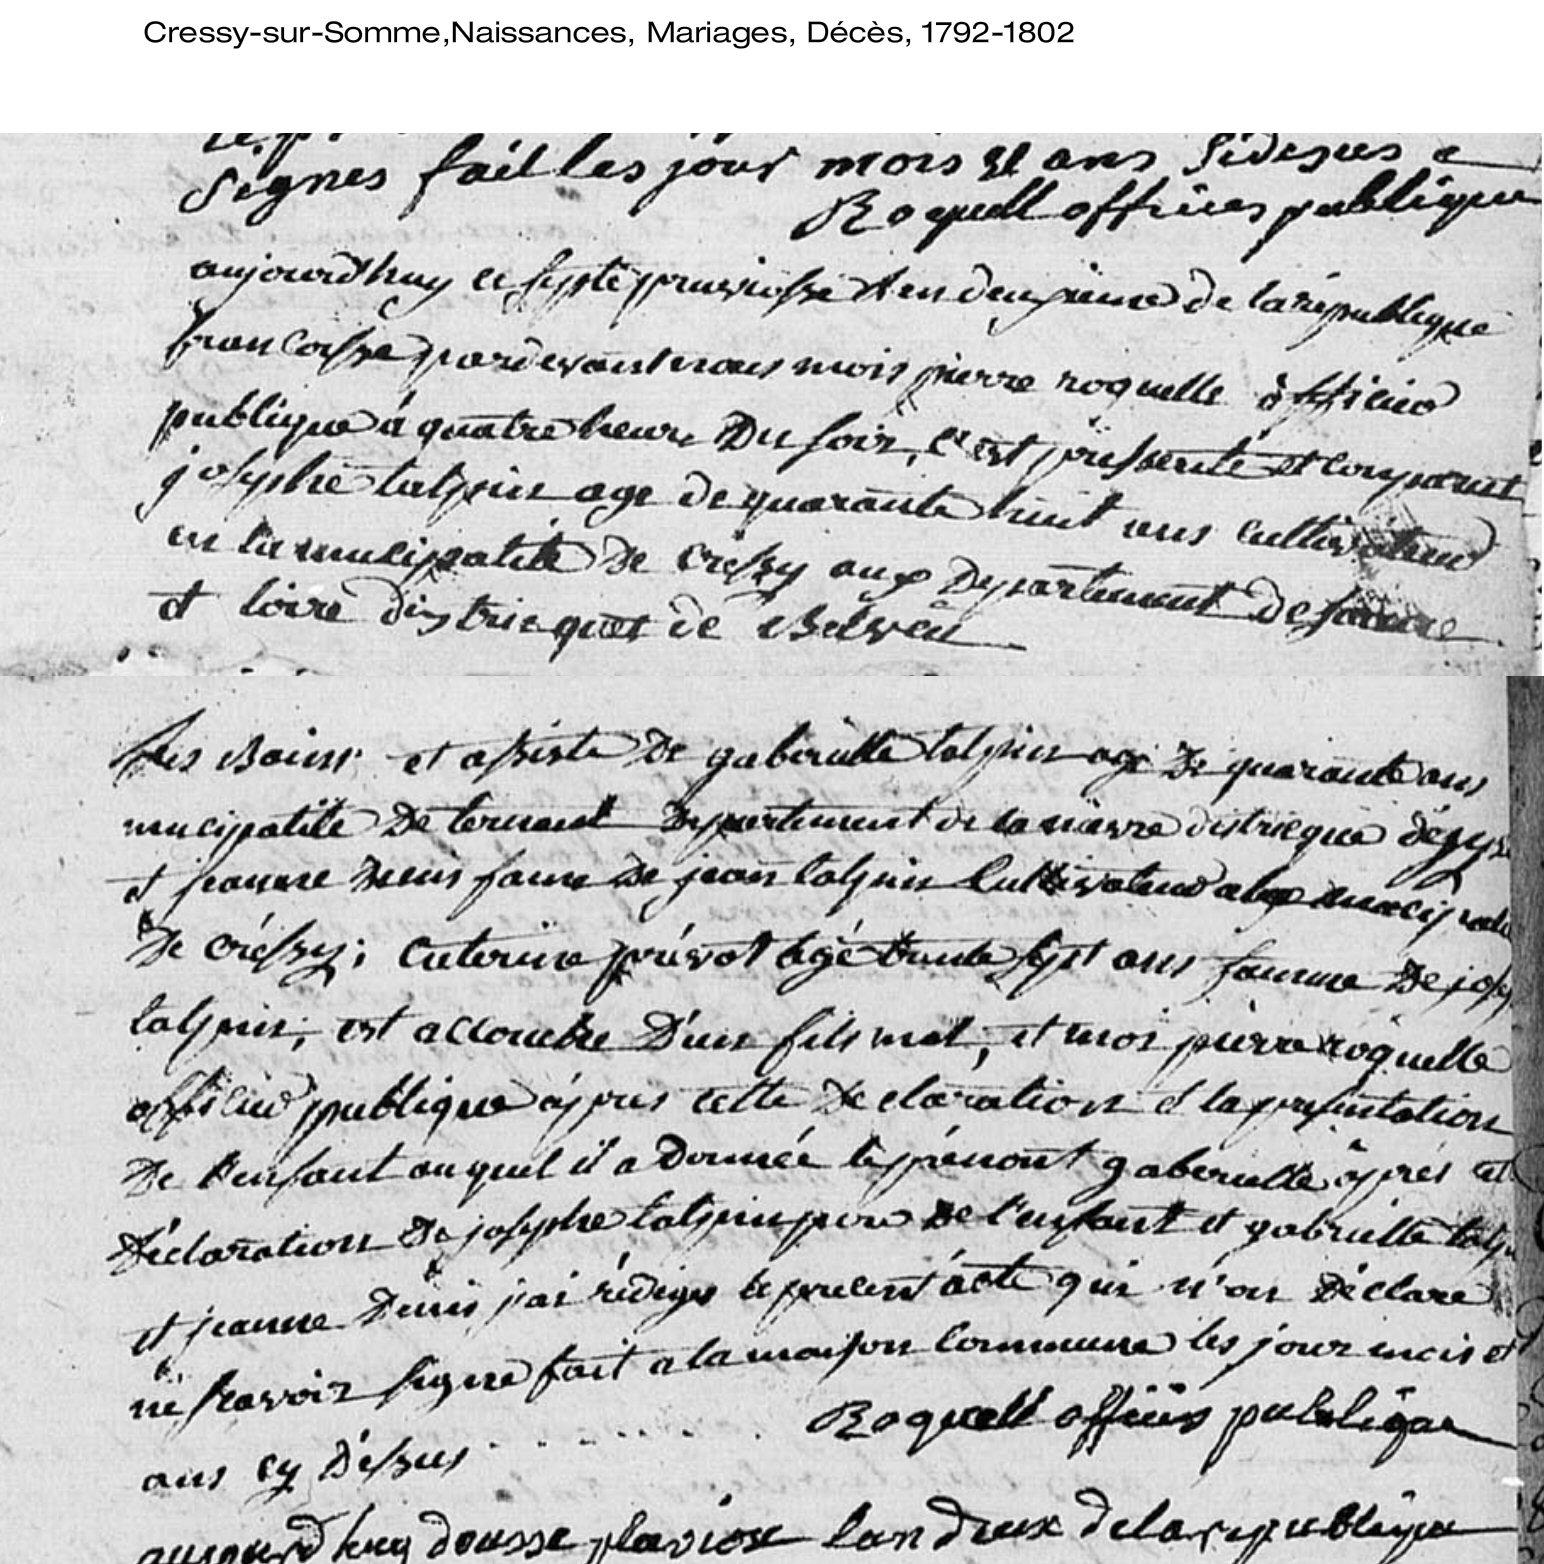 Cressy-sur-Somme,Naissances, Mariages, Décès, 1792-1802
signes fait les jour mois et ans sidesus
Roquell officies publique
aujourdhuy le septe pluviosse l'en deuxieme de la république
francoisse pardevant nous mois pierre roquelle officier
publique á quatre heure Du soir, c'est présenté et conparut
josephe talpin age de quarante huit ans cultivateur
en la mucipalité De Cressy aux Departement de saonne
et loire districquet de Belveu
les Bains et assiste De gaberielle talpin agé De quarante ans
mucipalité De ternant Departement de la niavre districque dé
et jeanne Denis famme De jean talpin Cultivateur
De créssy; Caterine prévot agé trente sept ans famme De
talpin, est accouche D'un fils mal, et moi pierre roquelle
officier publique áprés cette Declaration et la presentation
De l'enfant auquel il a donnéé le prénont gaberielle áprés
Déclaration De josephe talpin pere De l'enfant et gabrielle
et jeanne Denis j'ai rédiges le present ácte qui n'on Déclare
né scavoir signe fait a la maison Commune les jour mois et
ans cy Déssus
Roquell officies publique
aujourdhuy dousse plaviose lan deux de la republique